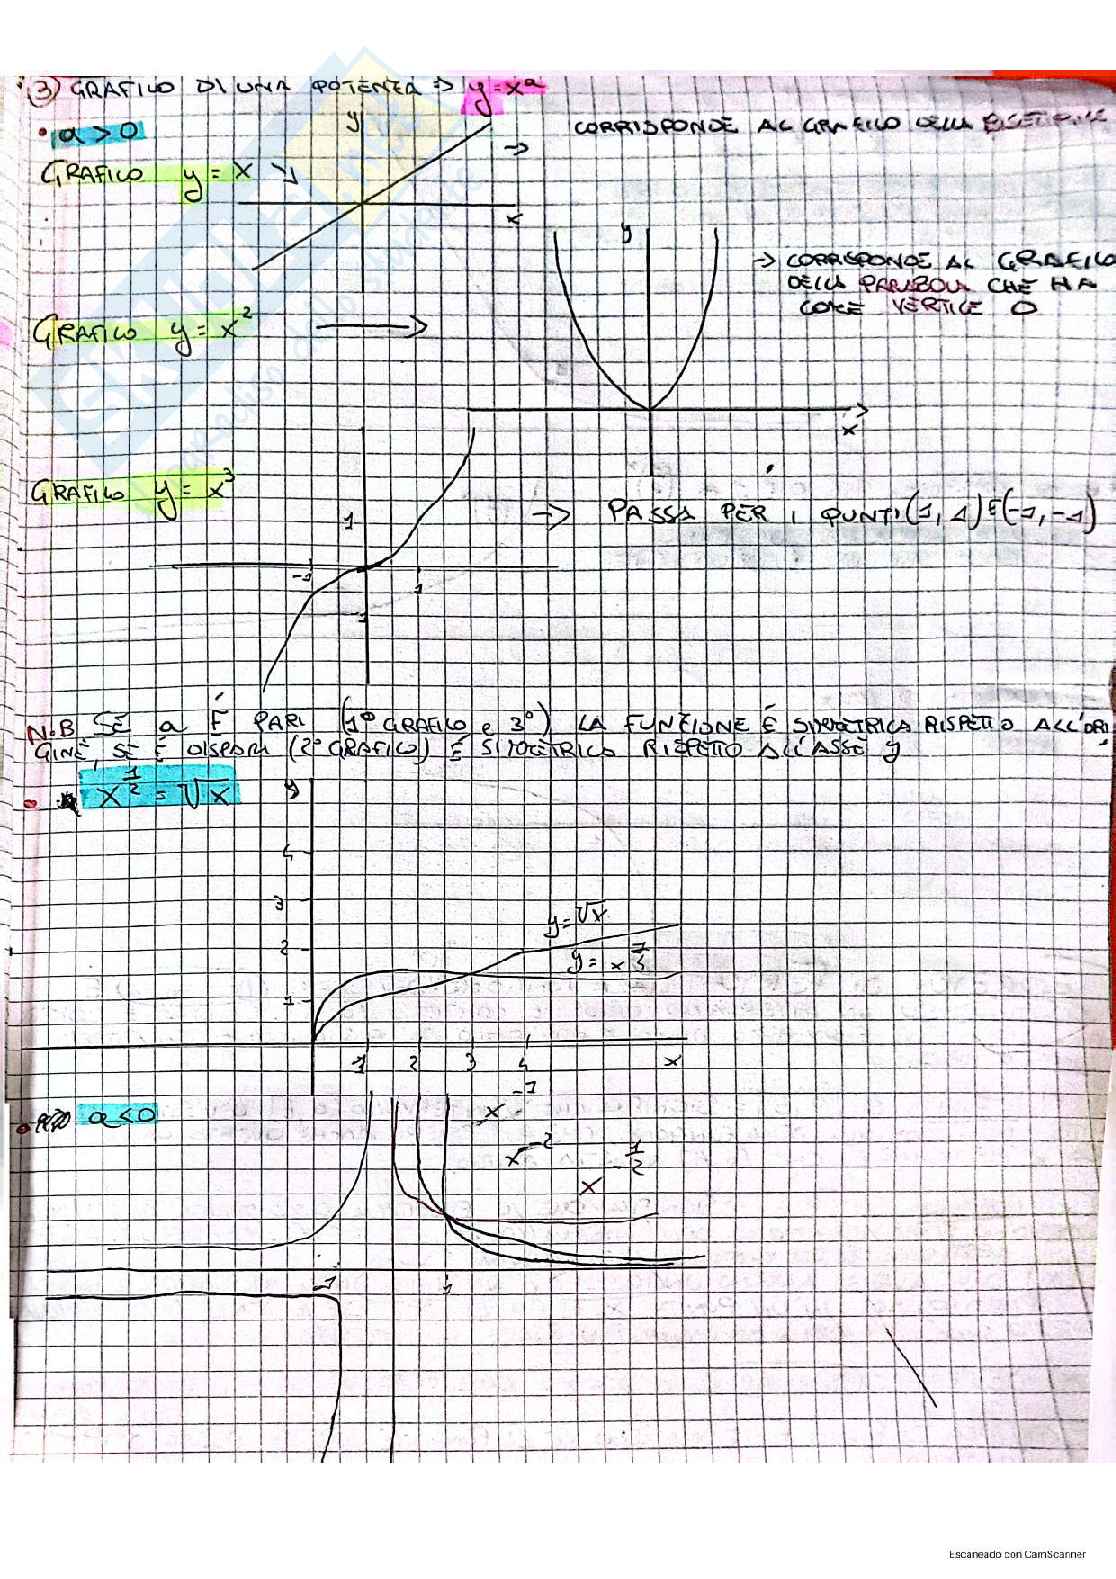 3) GRAFICO DI UNA POTENZA => y=x^a
• a > 0
y
→ CORRISPONDE AL GRAFICO DELLA BISETTRICE
GRAFICO y = x ↘
x
y
→ CORRISPONDE AL GRAFICO
DELLA PARABOLA CHE HA
COME VERTICE O
GRAFICO y = x^2 →
x
GRAFICO y = x^3
1
→ PASSA PER I PUNTI (1, 1) E (-1, -1)
-1
1
1
N.B. SE a È PARI (1° GRAFICO e 3°) LA FUNZIONE È SIMMETRICA RISPETTO ALL'ORI
GINE, SE È DISPARI (2° GRAFICO) È SIMMETRICA RISPETTO ALL'ASSE y
• x^1/2 = √x
y
4
3
y = √x
2
y = x^1/3
1
1 2 3 4 x
x^-1
• a < 0
x^-2
x^-1/2
-1
1
Escaneado con CamScanner